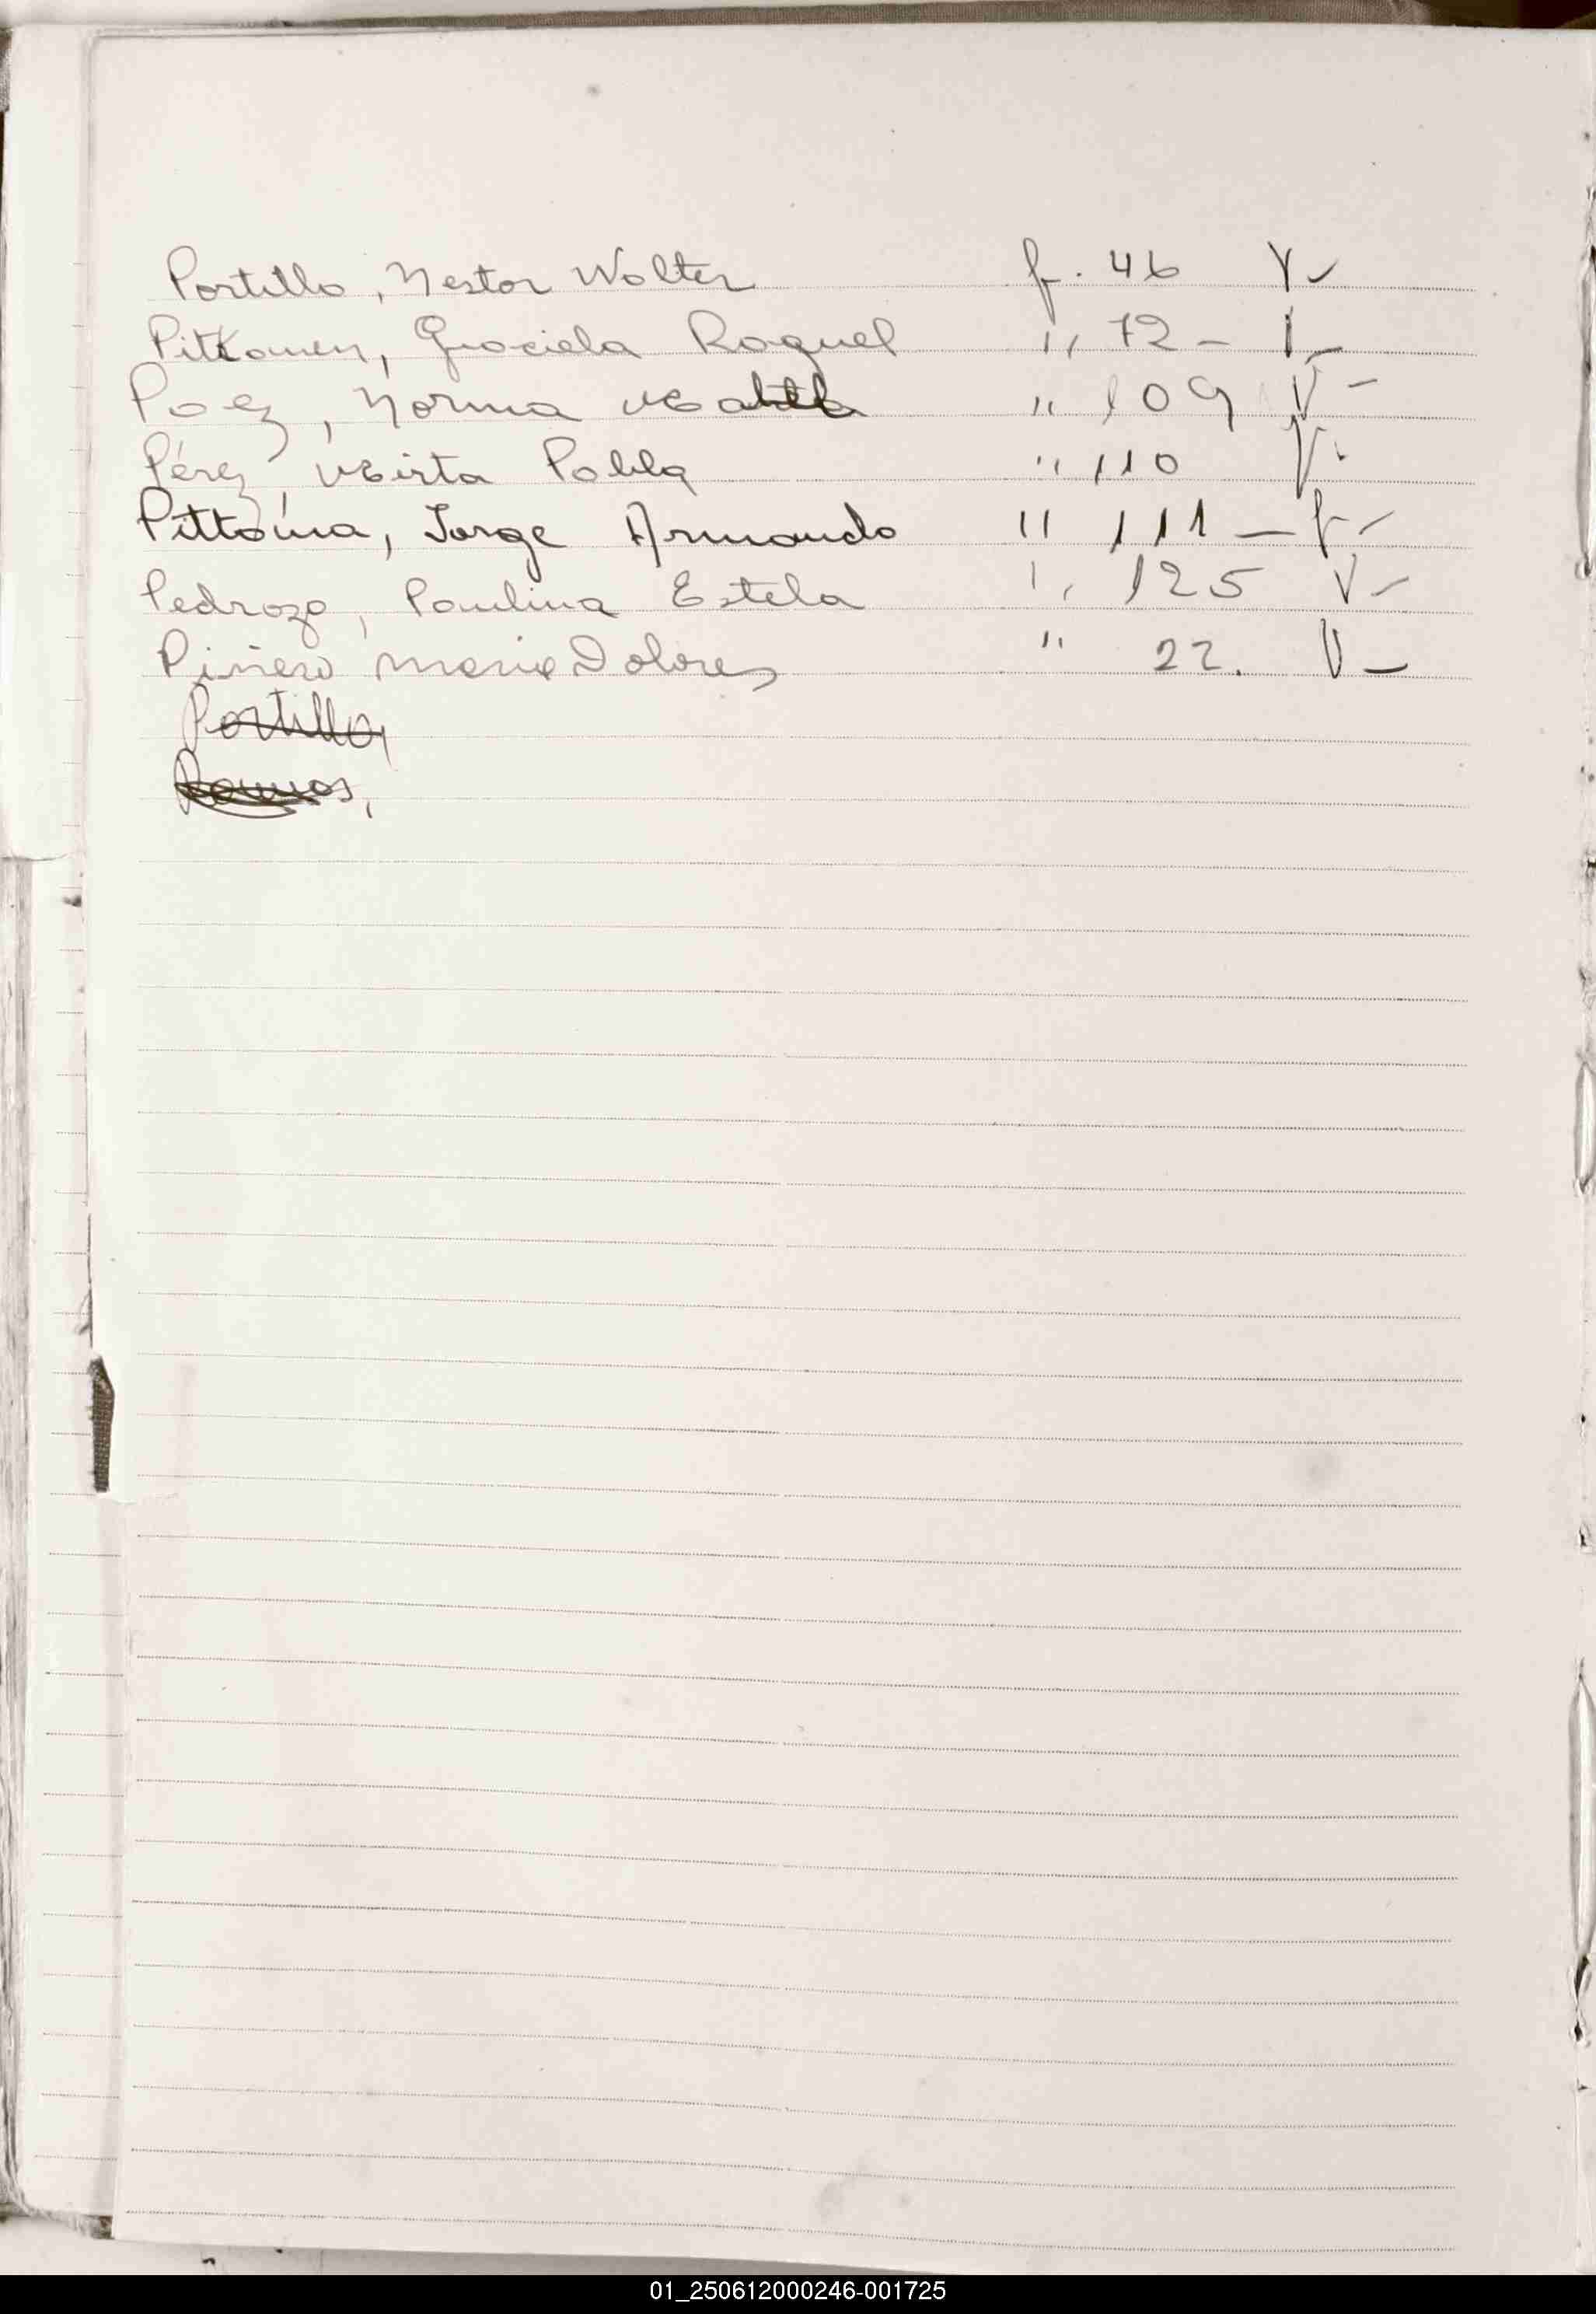 Portillo, Nestor Walter f. 46 V-
Pitkanen, Graciela Raquel " 72 - V-
Paez, Norma Mabel " 109 V-
Pérez, Mirta Pabla " 110 V-
Pittoma, Jorge Armando " 111 - V-
Pedrozo, Paulina Estela " 125 V-
Piñero Maria Dolores " 22. V-
Portillo,
Ramos,
01_250612000246-001725